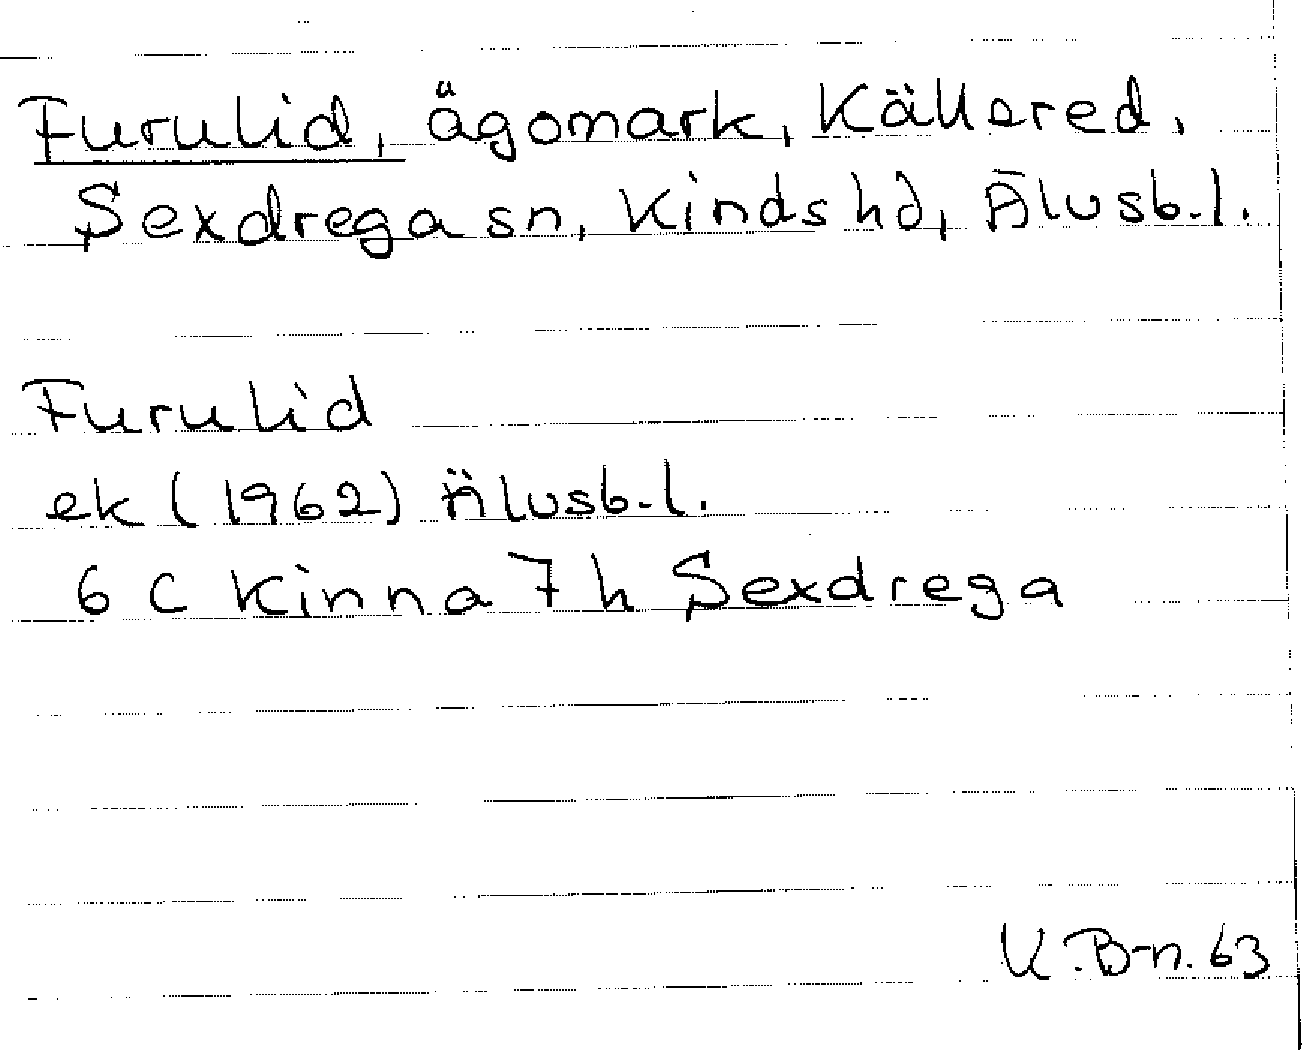 Furulid, ägomark, Källered,
Sexdrega sn, Kinds hd, Älvsb.l.
Furulid
ek (1962) Älvsb.l.
6 C Kinna 7 h Sexdrega
K.B-n. 63